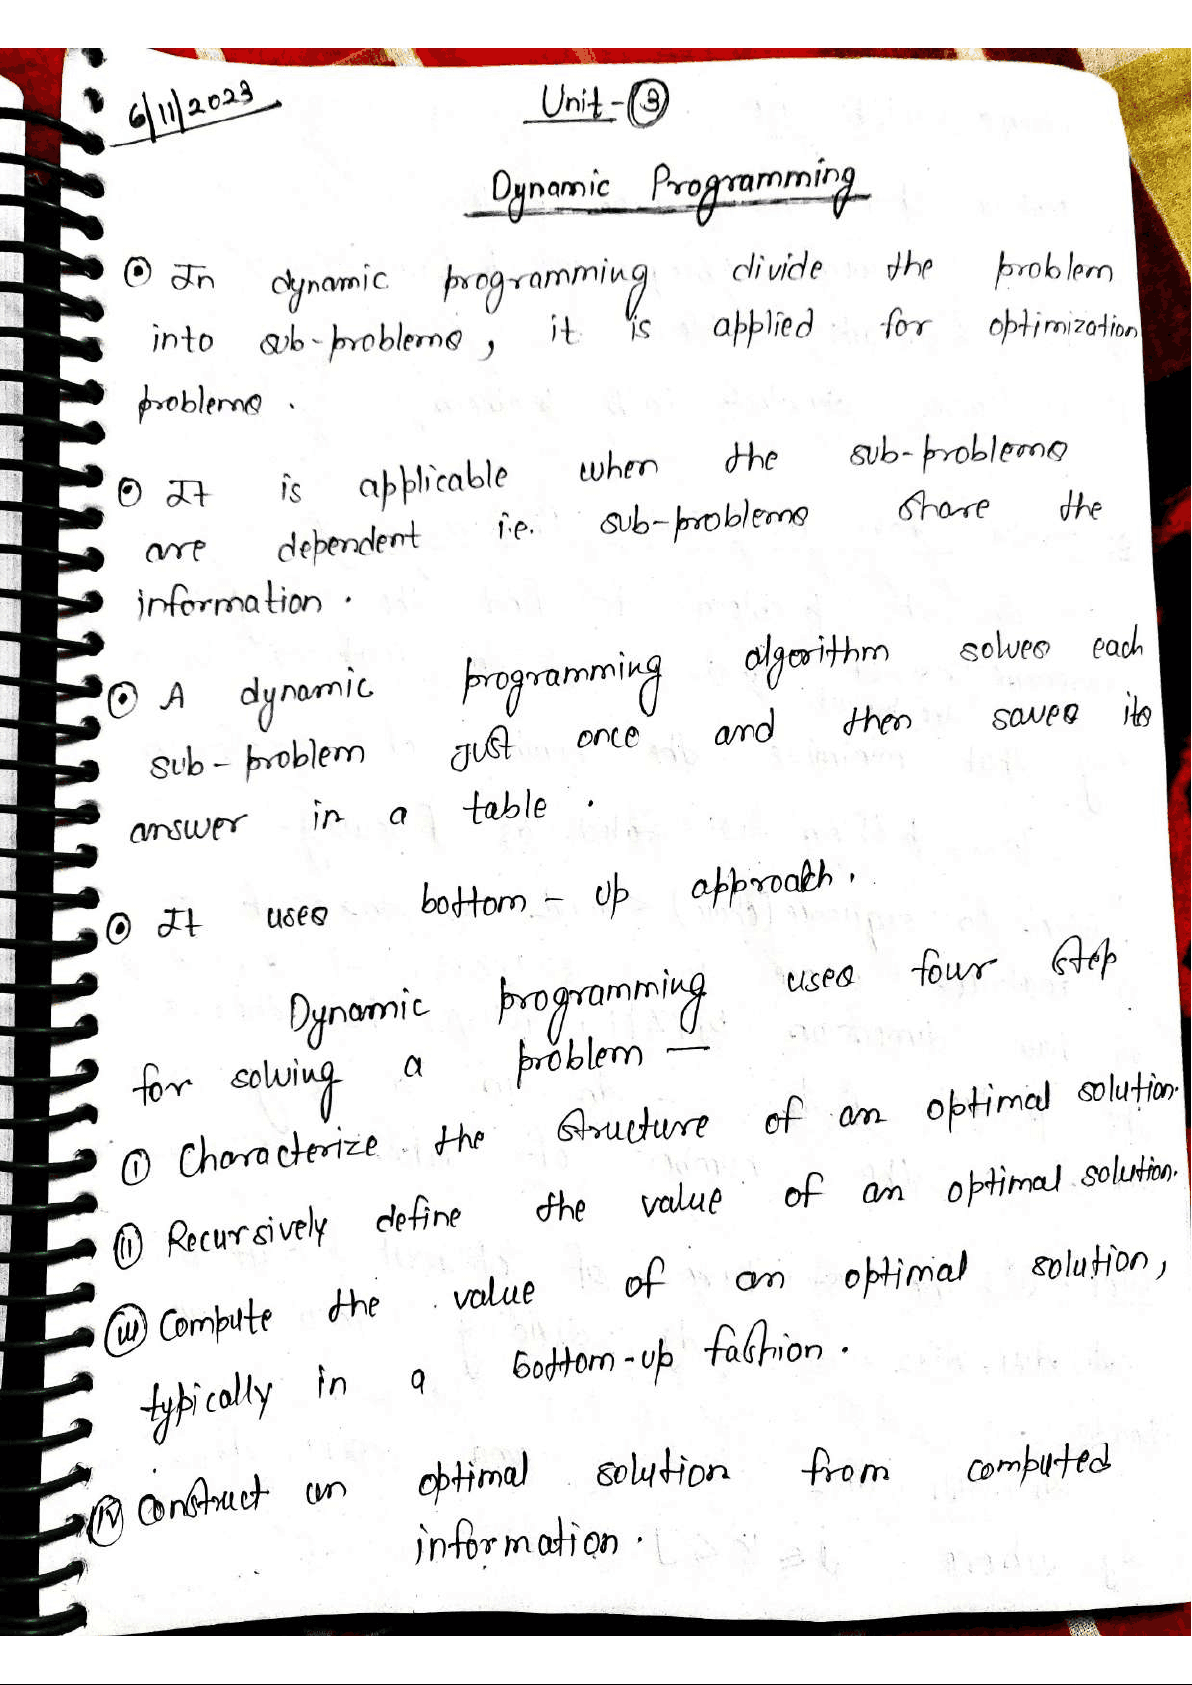 6/11/2023
Unit-③
Dynamic Programming
⊙ In dynamic programming divide the problem
into sub-problems, it is applied for optimization
problems.
⊙ It is applicable when the sub-problems
are dependent i.e. sub-problems share the
information.
⊙ A dynamic programming algorithm solves each
sub-problem just once and then saves its
answer in a table.
⊙ It uses bottom-up approach.
Dynamic programming uses four step
for solving a problem —
(i) Characterize the structure of an optimal solution.
(ii) Recursively define the value of an optimal solution.
(iii) Compute the value of an optimal solution,
typically in a bottom-up fashion.
(iv) Construct an optimal solution from computed
information.